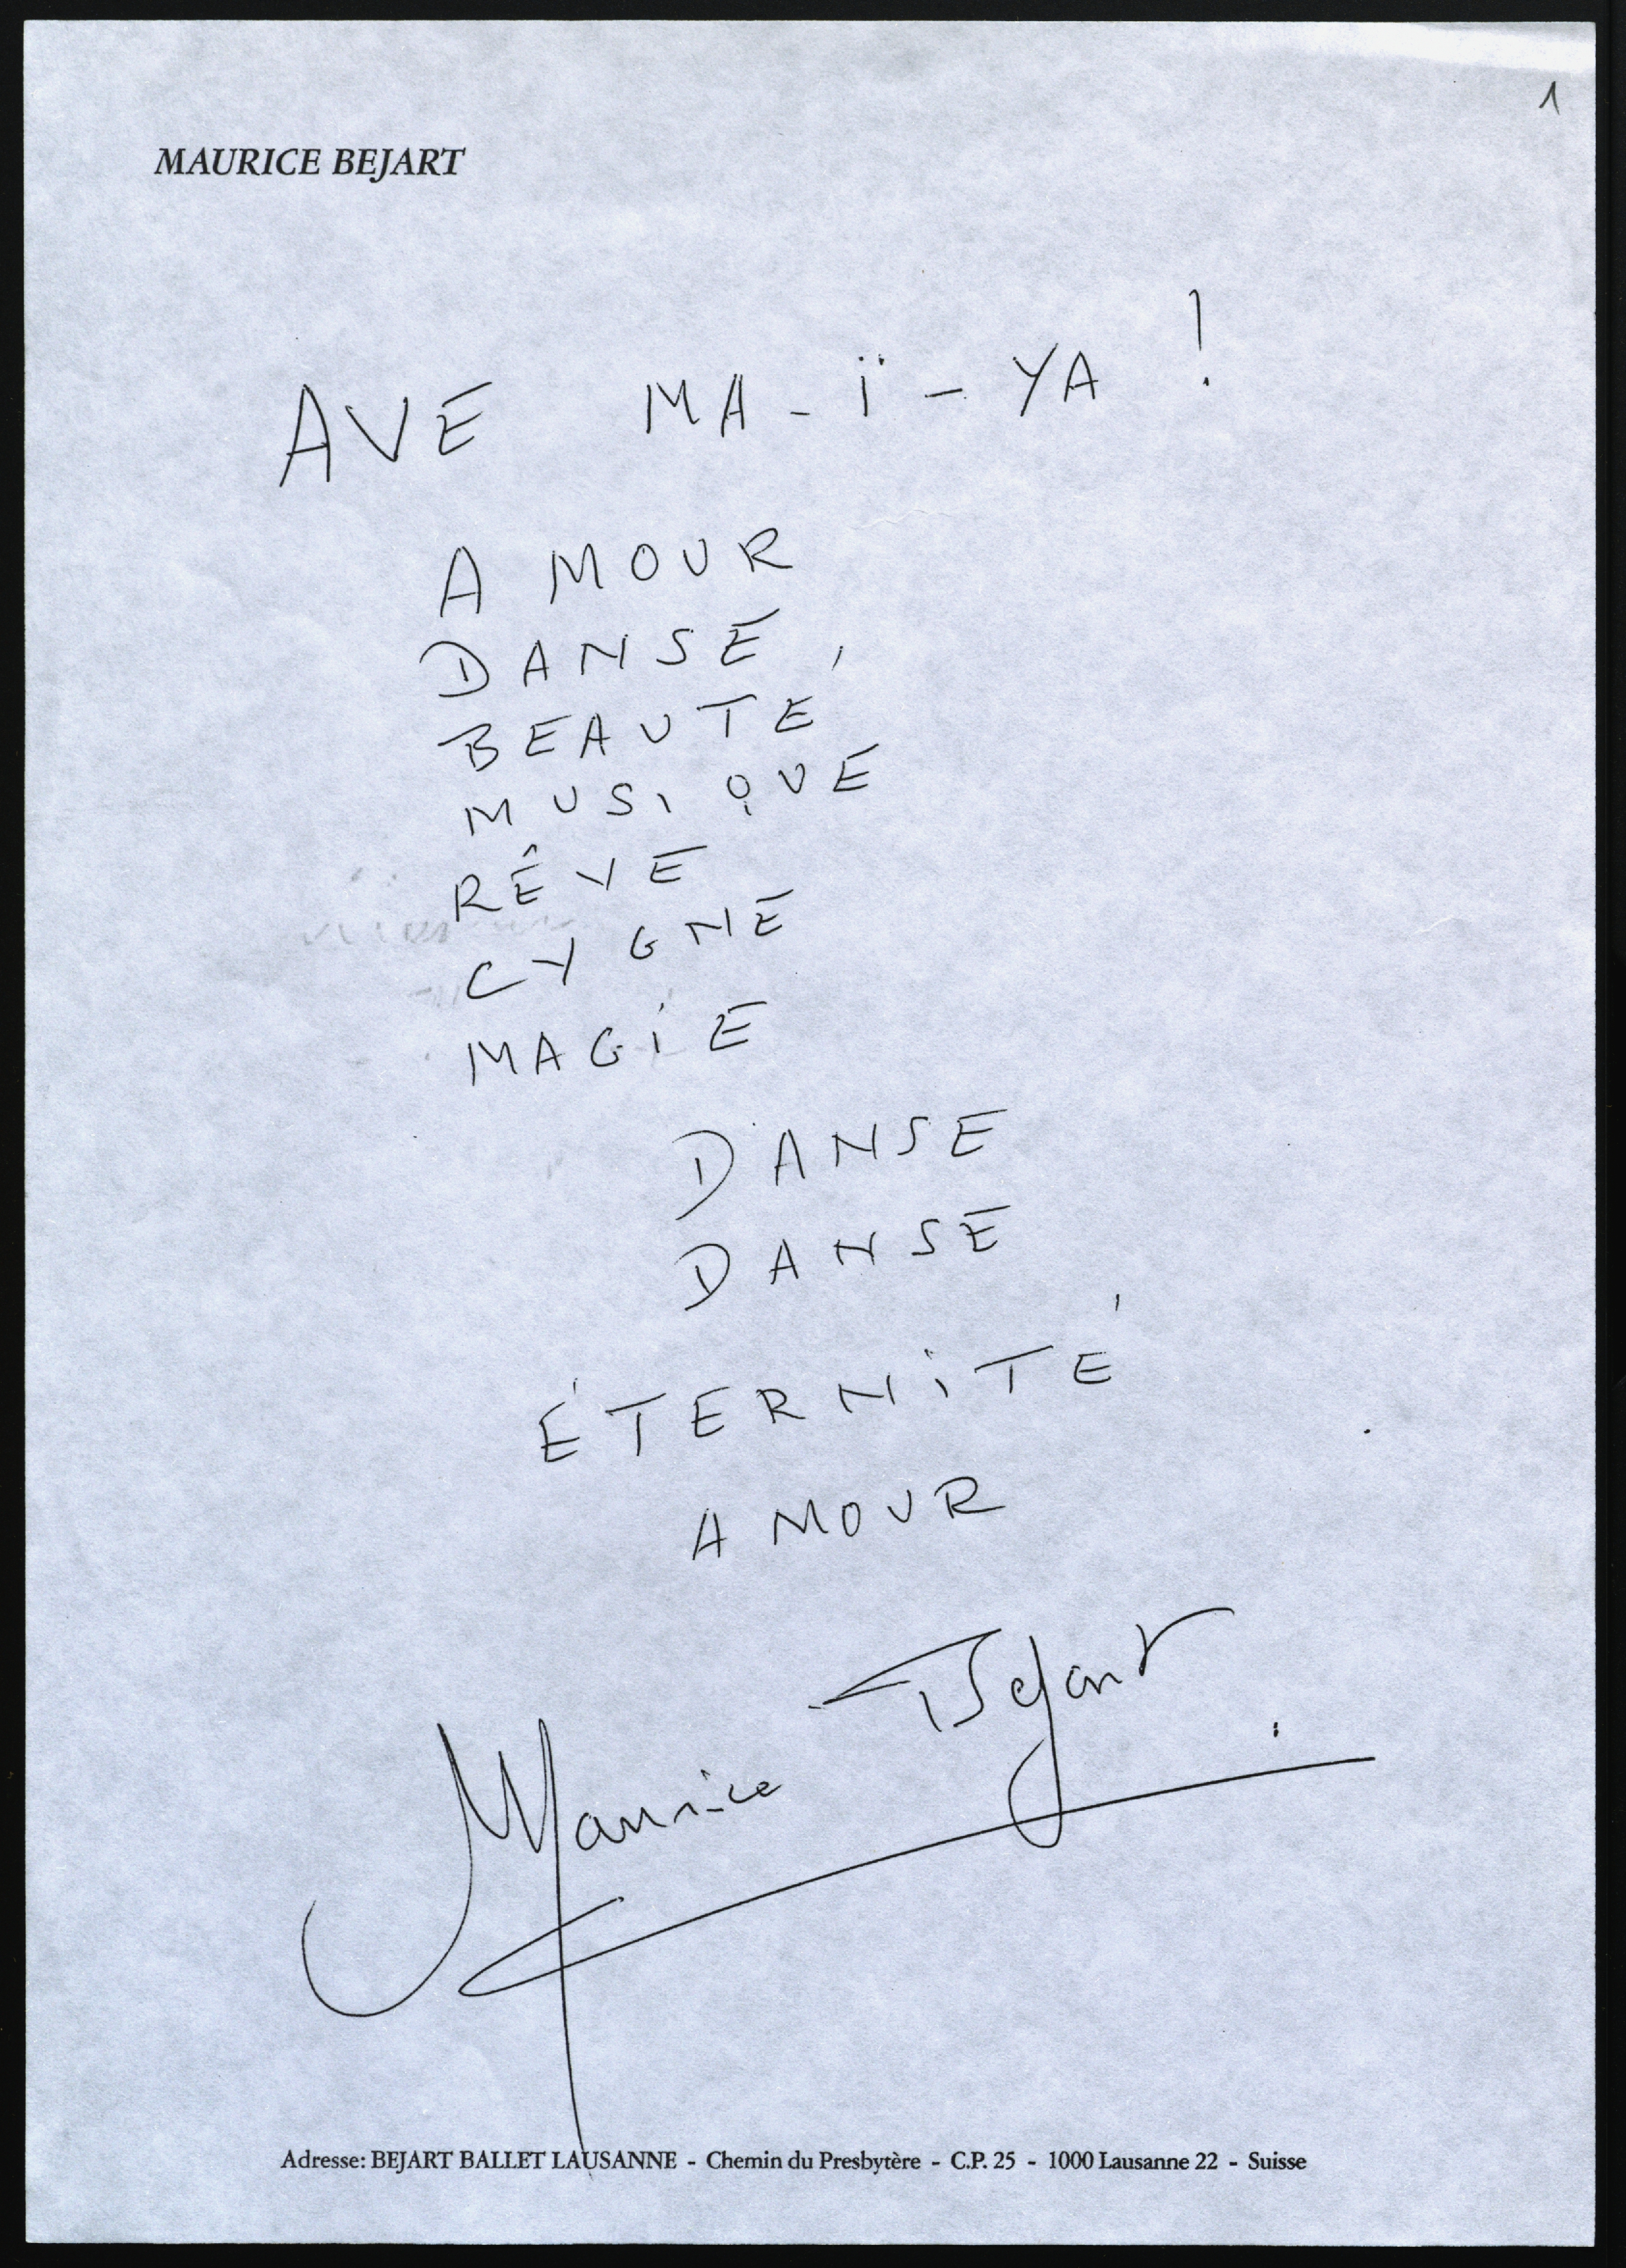 1
MAURICE BEJART
AVE MA-Ï-YA !
AMOUR
DANSE
BEAUTÉ
MUSIQUE
RÊVE
CYGNE
MAGIE
DANSE
DANSE
ÉTERNITÉ
AMOUR
Maurice Bejart
Adresse: BEJART BALLET LAUSANNE - Chemin du Presbytère - C.P. 25 - 1000 Lausanne 22 - Suisse